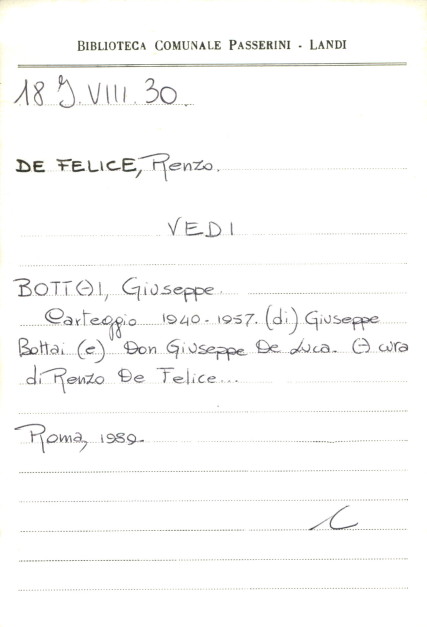 BIBLIOTECA COMUNALE PASSERINI - LANDI
18 J. VIII. 30.
DE FELICE, Renzo.
VEDI
BOTTAI, Giuseppe.
Carteggio 1940-1957. (di) Giuseppe
Bottai (e) Don Giuseppe De Luca. A cura
di Renzo De Felice...
Roma, 1989